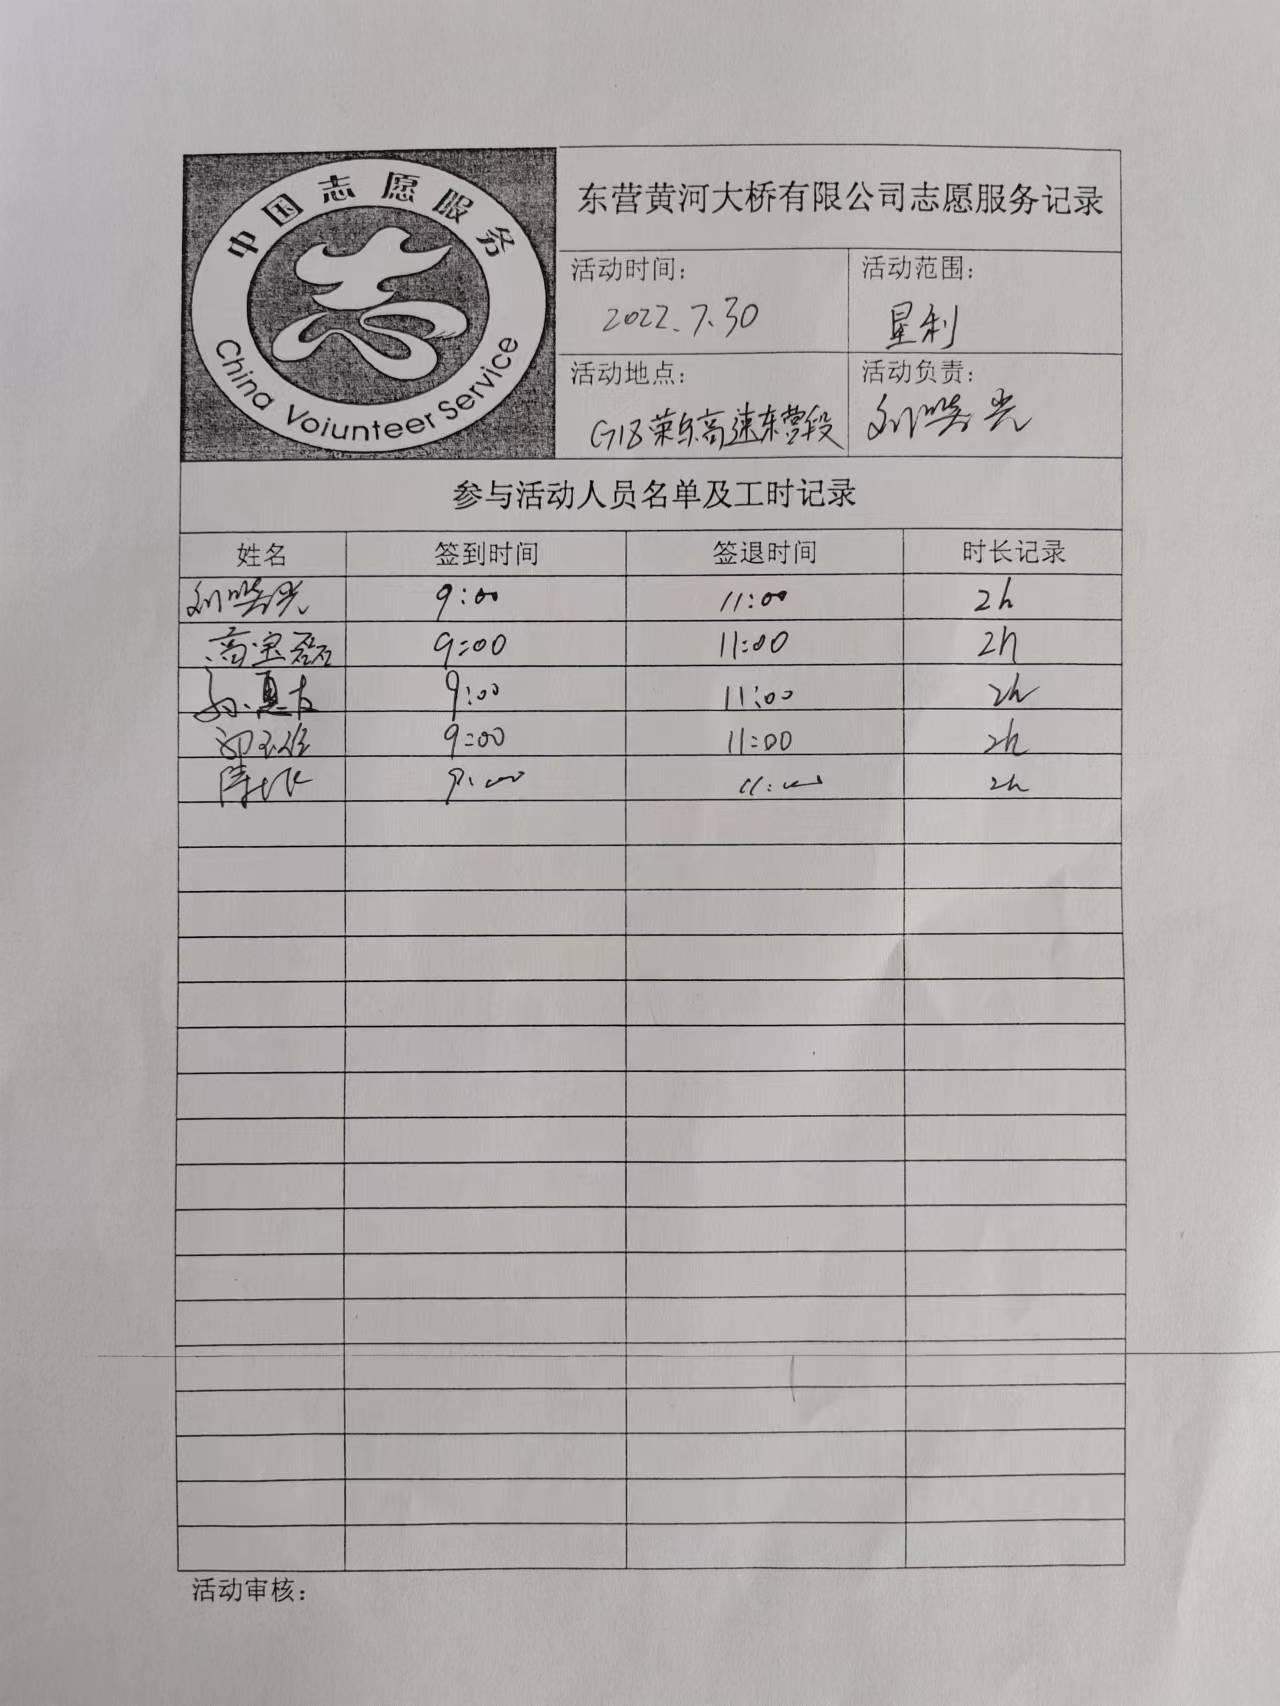 中国志愿服务
China Voiunteer Service
东营黄河大桥有限公司志愿服务记录
活动时间：
2022.7.30
活动范围：
垦利
活动地点：
G18荣乌高速东营段
活动负责：
参与活动人员名单及工时记录
姓名 签到时间 签退时间 时长记录
9:00 11:00 2h
高宝磊 9:00 11:00 2h
9:00 11:00 2h
9:00 11:00 2h
9:00 11:00 2h
活动审核：